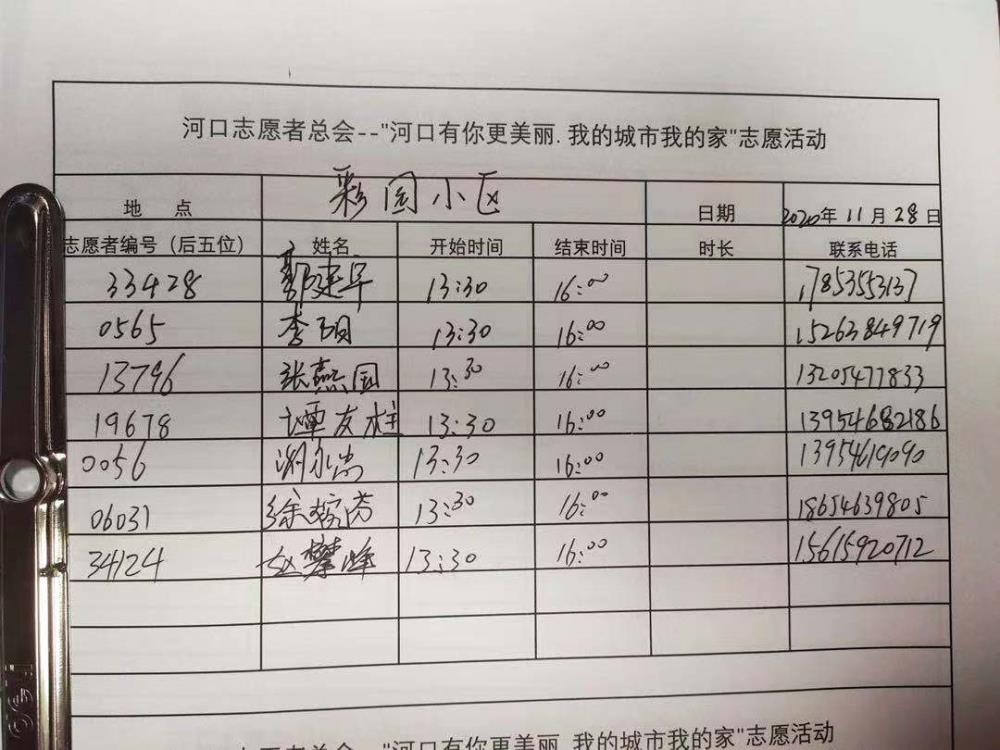 河口志愿者总会--"河口有你更美丽.我的城市我的家"志愿活动
地 点 彩园小区 日期 2020年11月28日
志愿者编号（后五位） 姓名 开始时间 结束时间 时长 联系电话
33428 郭建军 13:30 16:00 17853553137
0565 李明 13:30 16:00 15263849719
13796 张燕国 13:30 16:00 13205477833
19678 谭友柱 13:30 16:00 13954682186
0056 13:30 16:00 13954619090
06031 徐 芬 13:30 16:00 18654639805
34124 赵攀峰 13:30 16:00 15615920712
河口志愿者总会--"河口有你更美丽.我的城市我的家"志愿活动